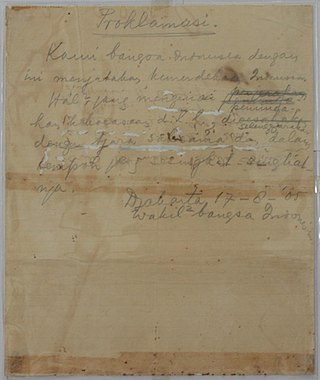 Proklamasi.
Kami bangsa Indonesia dengan
ini menjatakan kemerdekaan Indonesia.
Hal2 jang mengenai
pemindahan kekoeasaan d.l.l.,
diselenggarakan
dengan tjara saksama dan dalam
tempoh jang sesingkat-singkat
nja.
Djakarta, 17-8-'05
Wakil2 bangsa Indonesia